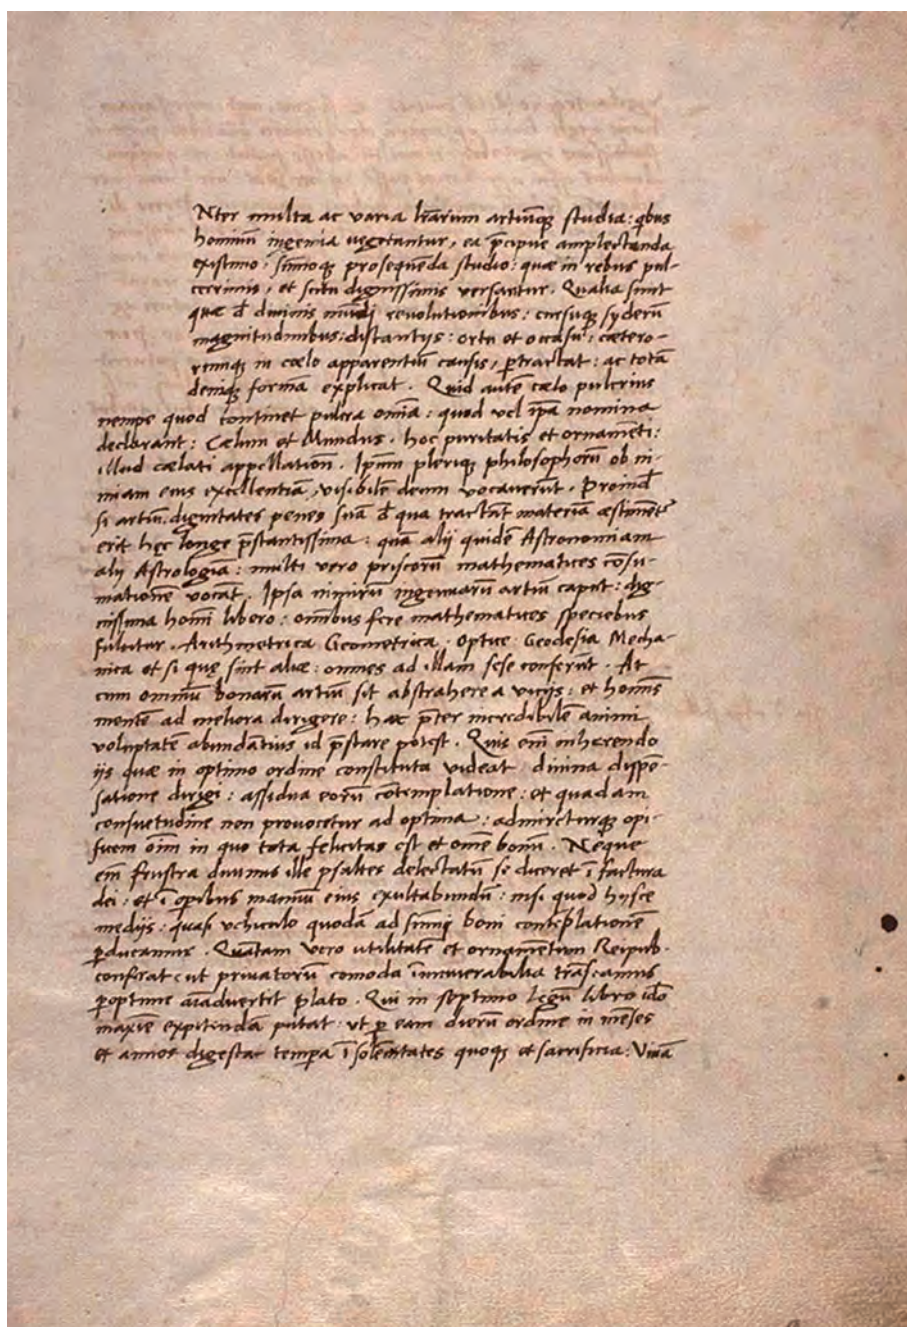 Nter multa ac varia lr̃arum artiũq; studia: qbus
hominũ ingenia vegetantur, ea p̃cipue amplectanda
existimo, sũmoq; prosequẽda studio: quæ in rebus pul-
cerrimis, et scitu dignissimis versantur. Qualia sunt
quæ d̃ diuinis mũdi reuolutionibus: cursuq; syderũ
magnitudinibus: distantijs: ortu et occasu, cætero-
rumq; in cœlo apparentiũ causis, ꝑtractat: ac totã
deniq; formã explicat. Quid autẽ cœlo pulcrius
nempe quod continet pulcra omĩa: quod vel ip̃a nomina
declarant: Cælum et Mundus. hoc puritatis et ornamẽti:
illud cælati appellationẽ. Ipsum pleriq; philosophorũ ob ni-
miam eius excellentiã, visibilẽ deum vocauerũt. Proind̃
si artiũ dignitates penes suã d̃ qua tractãt materiã æstimẽtʳ
erit hęc longe p̃stantissima: quã alij quidẽ Astronomiam
alij Astrologiã: multi vero priscorũ mathematices cõsu-
mationẽ vocãt. Ipsa nimirũ ingenuarũ artiũ caput: dig-
nissima homĩ libero: omnibus fere mathematices speciebus
fulcitur. Arithmetrica Geometrica. Optice Geodesia Mecha-
nica et si quę sint aliæ: omnes ad illam sese conferũt. At
cum omniũ bonarũ artiũ sit abstrahere a vicijs: et homĩs
mentẽ ad meliora dirigere: hæc p̃ter incredibilẽ animi
voluptatẽ abundãtius id p̃stare potest. Quis em̃ inherendo
ijs quæ in optimo ordine constituta videat diuina dispẽ-
satione dirigi: assidua eorũ cõtemplatione: et quadam
consuetudine non prouocetur ad optima: admireturq; opi-
ficem oĩm in quo tota felicitas est et omẽ bonũ. Neque
em̃ frustra diuinus ille psaltes delectatũ se diceret ĩ factura
dei: et ĩ opibus manuũ eius exultabundũ: nisi quod hijsce
medijs: quasi vehiculo quodã ad sũmi boni contẽplationẽ
ꝑducamur. Quãtam vero utilitatẽ et ornamẽtum Reipub.
conferat (ut priuatorũ comoda ĩnumerabilia trãseamus
ꝑoptime aĩaduertit plato. Qui in septimo legũ libro ido
maxĩe expetendã putat: vt ꝑ eam dierũ ordine in mẽses
et annos digesta tempa ĩ solẽnitates quoq; et sacrificia: viuã